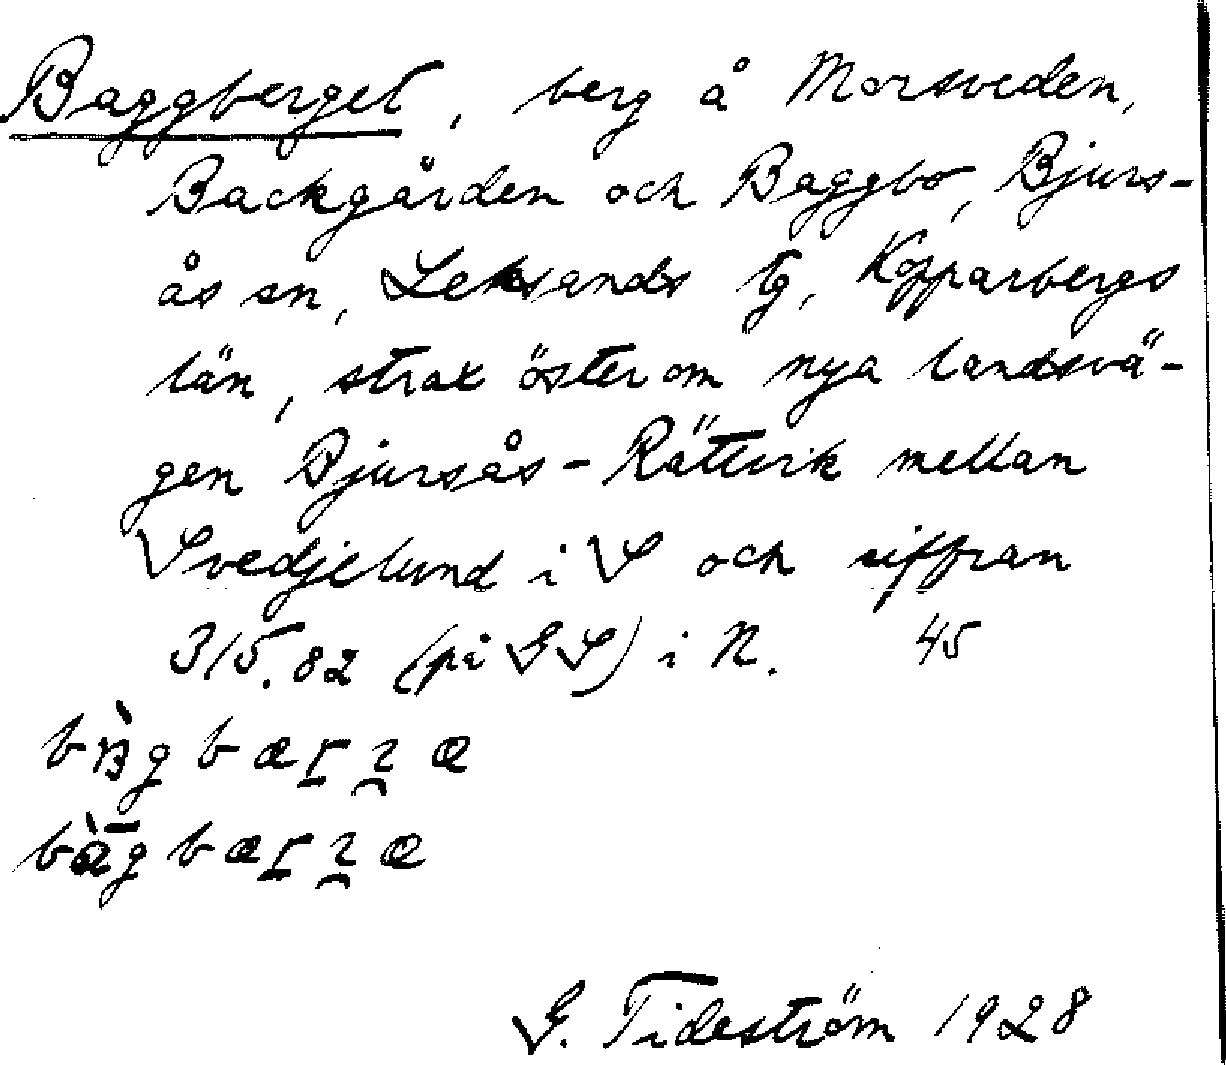 Baggberget, berg å Morsveden,
Backgården och Baggbo, Bjurs-
ås sn, Leksands tg, Kopparbergs
län, strax österom nya landsvä-
gen Bjursås-Rättvik mellan
Svedjelund i S och siffran
315.82 (på GS) i N. 45
G. Tideström 1928